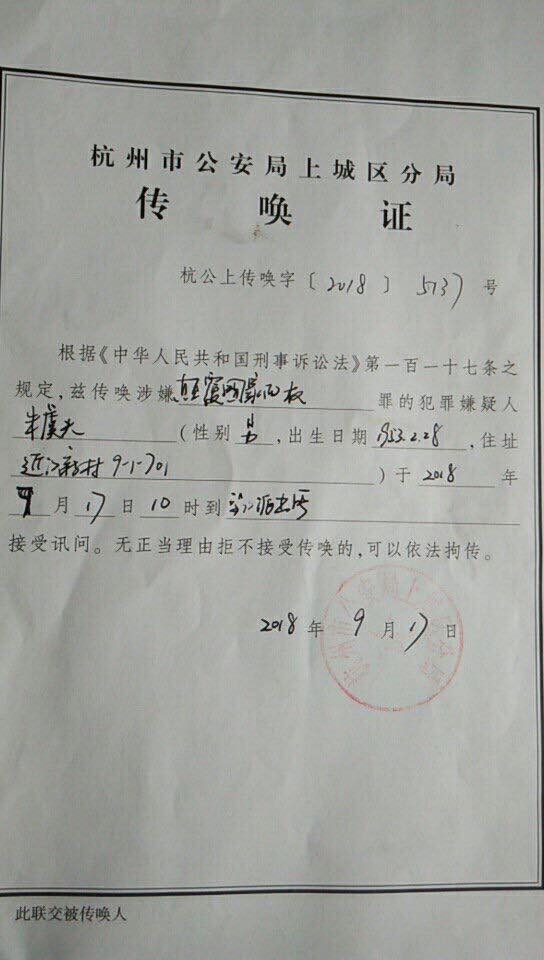 杭州市公安局上城区分局
传 唤 证
杭公上传唤字〔2018〕5137号
根据《中华人民共和国刑事诉讼法》第一百一十七条之
规定，兹传唤涉嫌颠覆国家政权罪的犯罪嫌疑人
虞夫（性别男，出生日期1953.2.28，住址
近江新村9-1-701）于2018年
9月17日10时到派出所
接受讯问。无正当理由拒不接受传唤的，可以依法拘传。
2018年9月17日
杭州市公安局上城区分局
此联交被传唤人